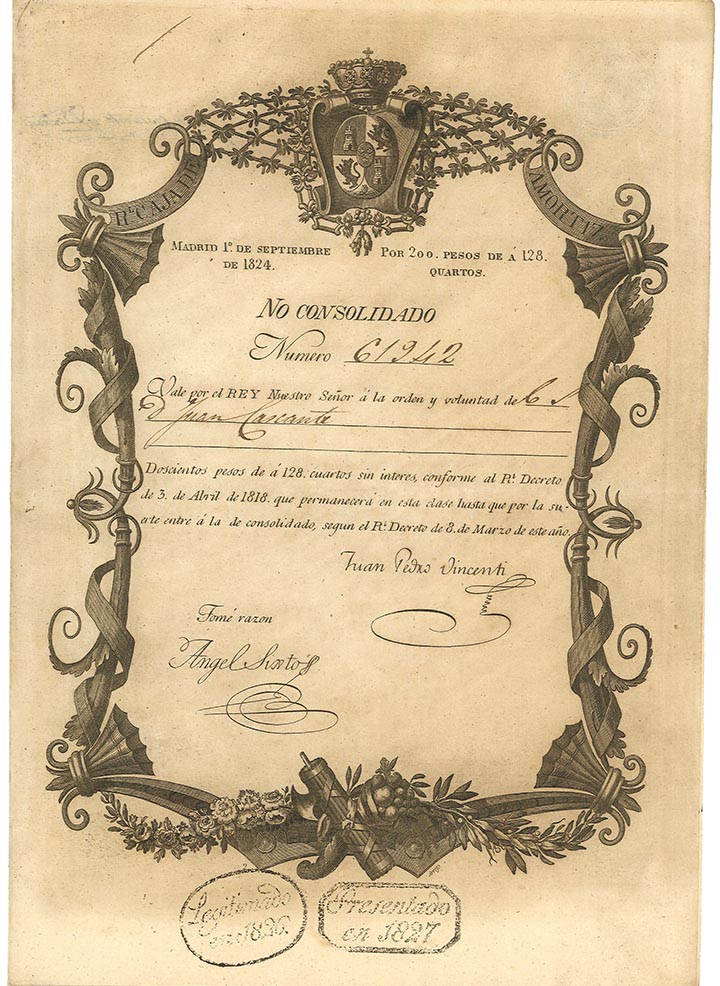 Rl. CAJA DE
AMORTIZ
MADRID 1º. DE SEPTIEMBRE
DE 1824.
POR 200. PESOS DE Á 128.
QUARTOS.
NO CONSOLIDADO
Numero 61942
Vale por el REY Nuestro Señor á la orden y voluntad de
D. Juan Cascante
Doscientos pesos de á 128. cuartos sin interes, conforme al Rl. Decreto
de 3. de Abril de 1818. que permanecerá en esta clase hasta que por la su-
erte entre á la de consolidado, segun el Rl. Decreto de 8. de Marzo de este año.
Juan Pedro Vincenti
Tomé razon
Angel Sixtos
Legitimado
en 1830
Presentado
en 1827